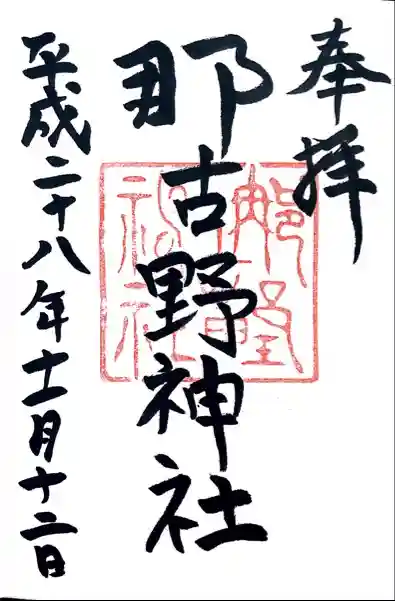 奉拝
那古野神社
平成二十八年十一月十二日